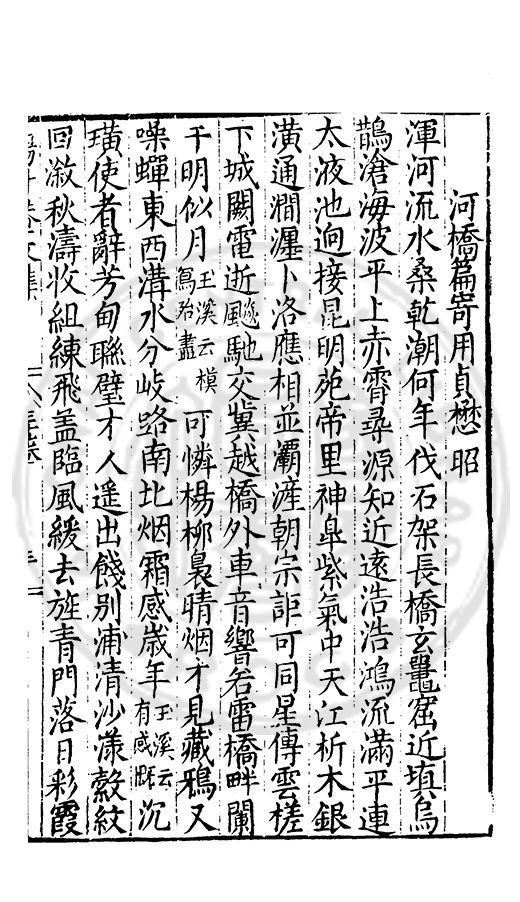 河橋篇寄用貞懋昭
渾河流水桑乾潮何年伐石架長橋玄鼉窟近填烏
鵲滄海波平上赤霄尋源知近遠浩浩鴻流滿平連
太液池逈接昆明苑帝里神臯紫氣中天江析木銀
潢通澗瀍卜洛應相並灞滻朝宗詎可同星傳雲槎
下城闕電逝飈馳交兾越橋外車音響若雷橋畔闌
干明似月玉溪云模寫殆盡可憐楊柳裊晴烟才見藏鴉又
噪蟬東西溝水分岐路南北烟霜感歲年玉溪云有感慨沉
璜使者辭芳甸聯璧才人遥出餞別浦清沙漾縠紋
回漵秋濤收組練飛盖臨風緩去旌青門落日彩霞